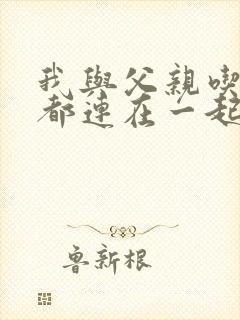 我與父親喫
都連在一起
魯新根